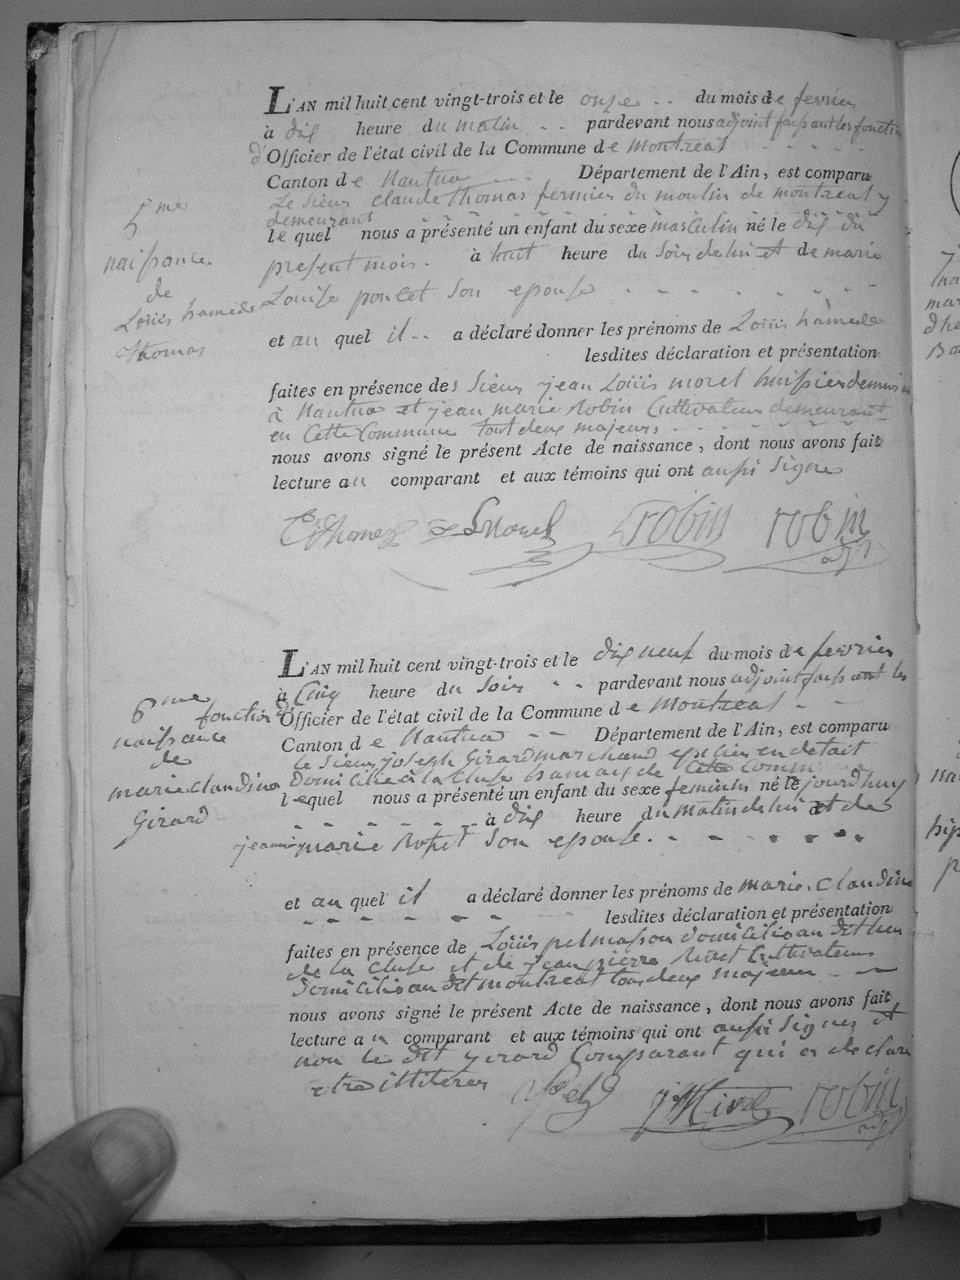 L'AN mil huit cent vingt-trois et le onze du mois de fevrier
à dix heure du matin pardevant nous adjoint faisant les fonction
d'Officier de l'état civil de la Commune de Montreal
Canton de Nantua Département de l'Ain, est comparu
Le Sieur Claude Thomas fermier du moulin de montreal y
demeurant
le quel nous a présenté un enfant du sexe masculin né le dix du
present mois. à huit heure du Soir de lui et de marie
Louise poncet son epouse
et au quel il a déclaré donner les prénoms de Loüis hamede
lesdites déclaration et présentation
faites en présence des Sieur jean Loüis morel huissier demeurant
à Nantua et jean marie Robin Cultivateur demeurant
en Cette Commune tout deux majeurs
nous avons signé le présent Acte de naissance, dont nous avons fait
lecture au comparant et aux témoins qui ont aussi Signe
5me
naissance
de
Loüis hamede
thomas
Thomas Morel robin robin
adj
L'AN mil huit cent vingt-trois et le dix neuf du mois de fevrier
à Cinq heure du Soir pardevant nous adjoint faisant les
fonction d'Officier de l'état civil de la Commune de Montreal
Canton de Nantua Département de l'Ain, est comparu
le Sieur joseph Girard marchand epicier en detait
Domicilié à la Cluse hamau de Cette Comm
lequel nous a présenté un enfant du sexe feminin né le jourd'huy
à dix heure du matin de lui et de
jeanne marie son epouse.
et au quel il a déclaré donner les prénoms de marie Claudine
lesdites déclaration et présentation
faites en présence de Loüis masson domicilié au dit lieu
de la Cluse et de jean pierre Cultivateur
Domicilié au dit montreal tous deux majeur
nous avons signé le présent Acte de naissance, dont nous avons fait
lecture au comparant et aux témoins qui ont aussi Signes et
non le dit girard Comparant qui a declaré
etre illiteré
6me
naissance
de
marie claudine
Girard
robin
adj